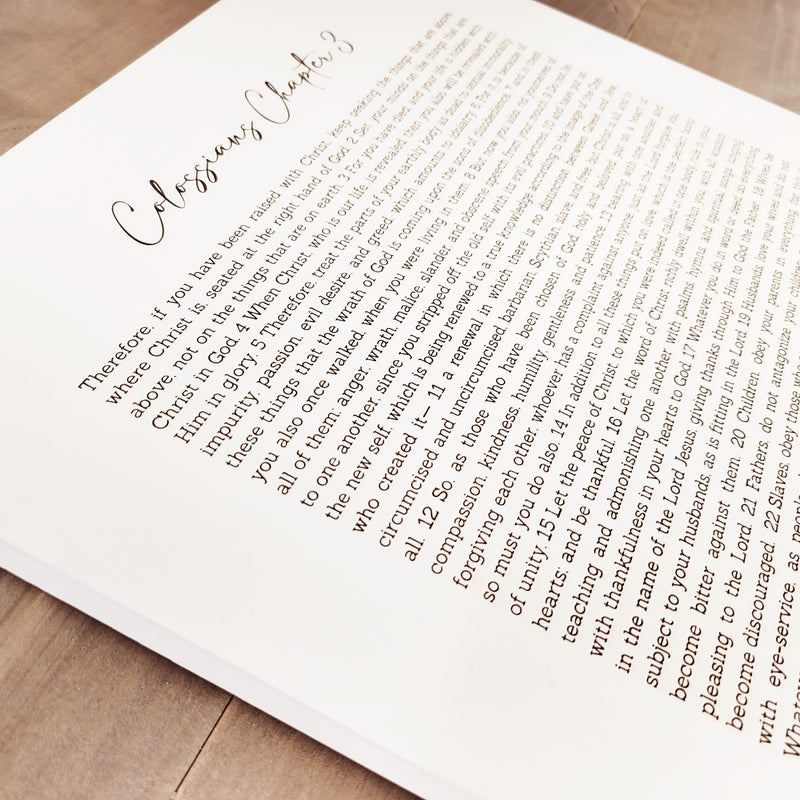 Colossians Chapter 3
Therefore, if you have been raised with Christ, keep seeking the things that are above
where Christ is, seated at the right hand of God. 2 Set your minds on the things that are
above, not on the things that are on earth. 3 For you have died, and your life is hidden with
Christ in God. 4 When Christ who is our life, is revealed, then you also will be revealed with
Him in glory. 5 Therefore, treat the parts of your earthly body as dead to sexual immorality,
impurity, passion, evil desire, and greed, which amounts to idolatry. 6 For it is because of
these things that the wrath of God is coming upon the sons of disobedience, 7 and in them
you also once walked, when you were living in them. 8 But now you also, rid yourselves of
all of them: anger, wrath, malice, slander, and obscene speech from your mouth. 9 Do not lie
to one another, since you stripped off the old self with its evil practices, 10 and have put on
the new self, which is being renewed to a true knowledge according to the image of the One
who created it— 11 a renewal in which there is no distinction between Greek and Jew,
circumcised and uncircumcised, barbarian, Scythian, slave, and free, but Christ is all, and in
all. 12 So, as those who have been chosen of God, holy and beloved, put on a heart of
compassion, kindness, humility, gentleness, and patience; 13 bearing with one another, and
forgiving each other, whoever has a complaint against anyone; just as the Lord forgave you,
so must you do also. 14 In addition to all these things put on love, which is the perfect bond
of unity. 15 Let the peace of Christ, to which you were indeed called in one body, rule in your
hearts; and be thankful. 16 Let the word of Christ richly dwell within you, with all wisdom
teaching and admonishing one another with psalms, hymns, and spiritual songs, singing
with thankfulness in your hearts to God. 17 Whatever you do in word or deed, do everything
in the name of the Lord Jesus, giving thanks through Him to God the Father. 18 Wives, be
subject to your husbands, as is fitting in the Lord. 19 Husbands, love your wives and do not
become bitter against them. 20 Children, obey your parents in everything, for
pleasing to the Lord. 21 Fathers, do not antagonize your children
become discouraged. 22 Slaves, obey those who
with eye-service, as people
Whatever